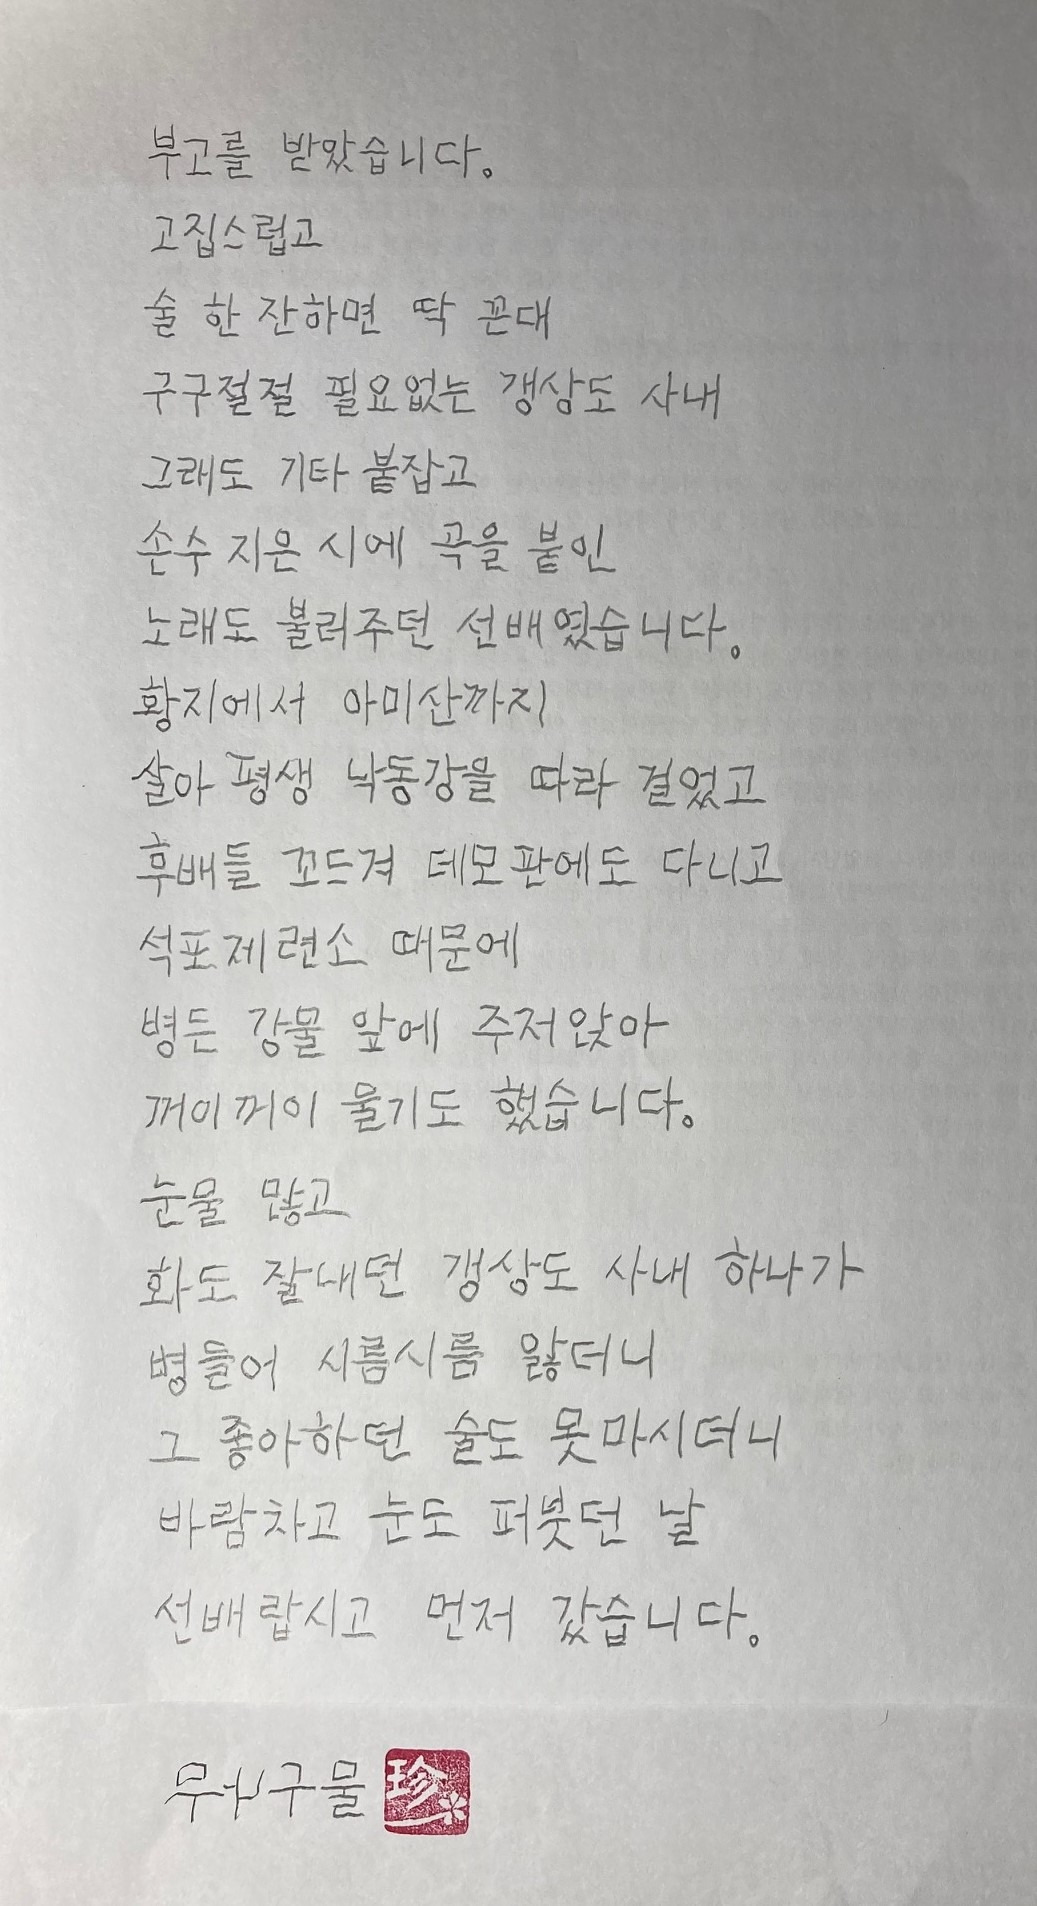 부고를 받았습니다.
고집스럽고
술 한 잔하면 딱 꼰대
구구절절 필요없는 갱상도 사내
그래도 기타 붙잡고
손수 지은 시에 곡을 붙인
노래도 불러주던 선배였습니다.
황지에서 아미산까지
살아 평생 낙동강을 따라 걸었고
후배들 꼬드겨 데모판에도 다니고
석포제련소 때문에
병든 강물 앞에 주저앉아
꺼이꺼이 울기도 했습니다.
눈물 많고
화도 잘내던 갱상도 사내 하나가
병들어 시름시름 앓더니
그 좋아하던 술도 못마시더니
바람차고 눈도 퍼붓던 날
선배랍시고 먼저 갔습니다.
珍